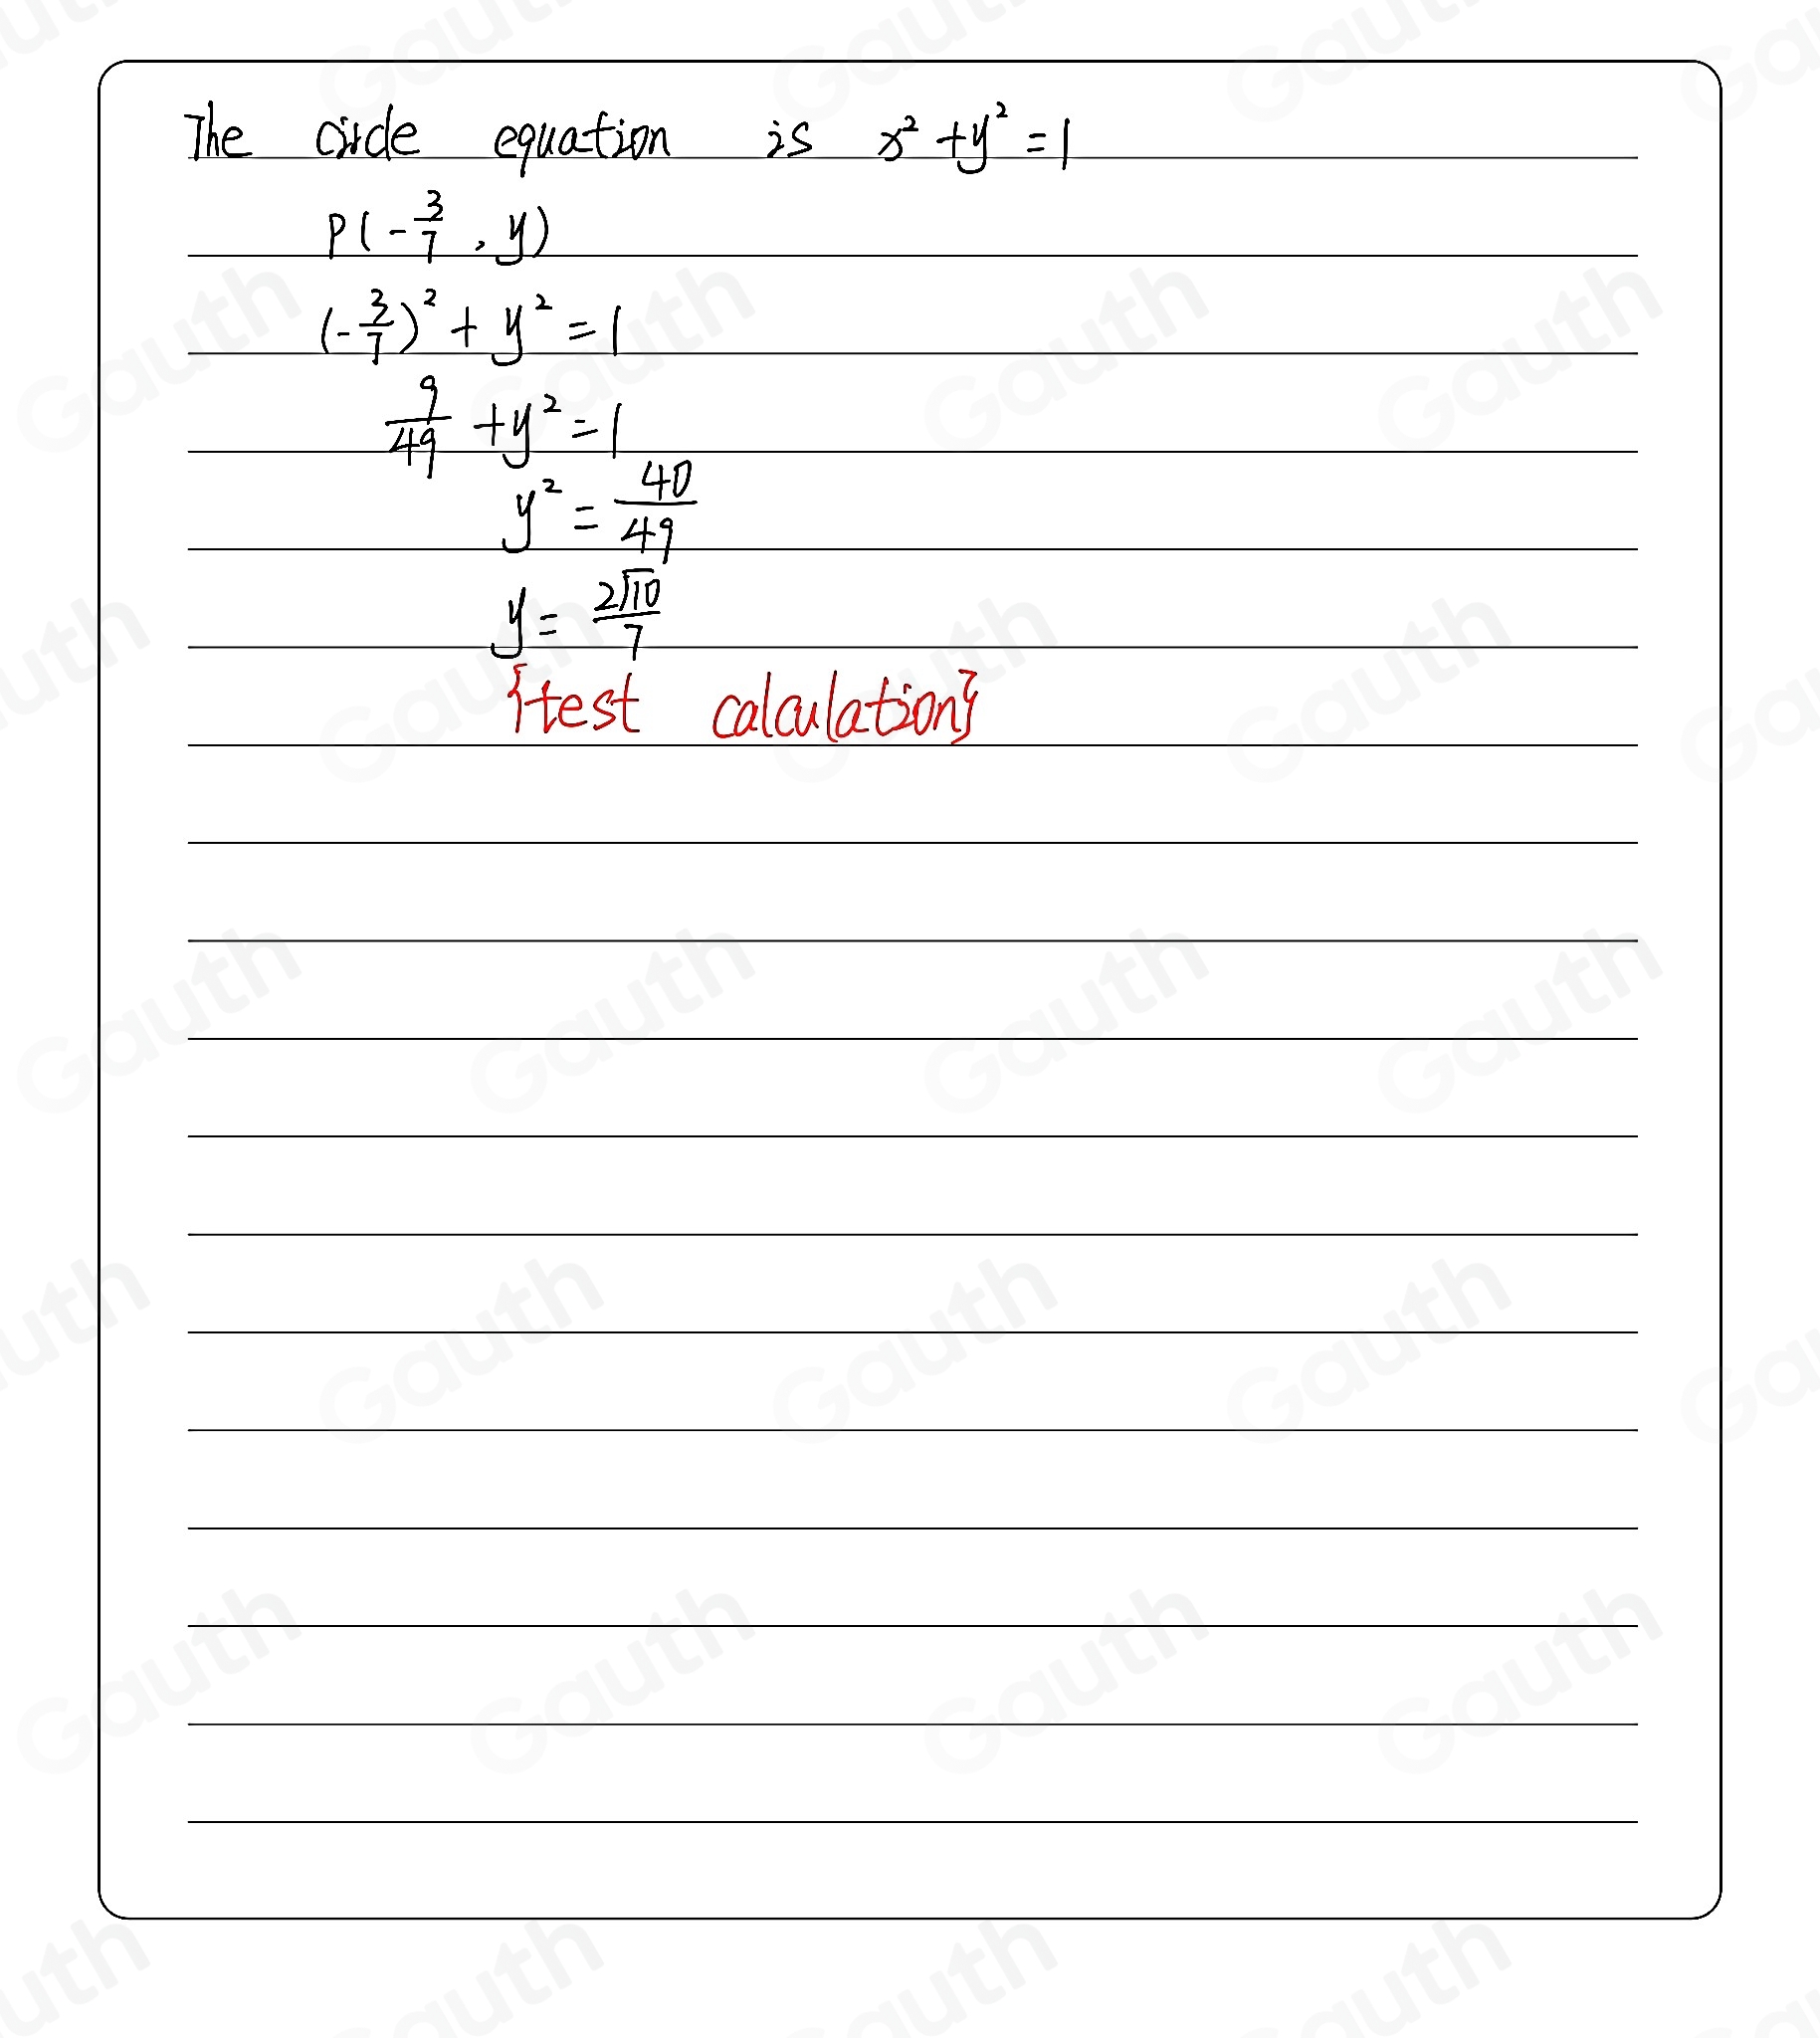 The circle equation is x² + y² = 1
P(-3/7, y)
(-3/7)² + y² = 1
9/49 + y² = 1
y² = 40/49
y = 2√10/7
{test calculation}
Gauth